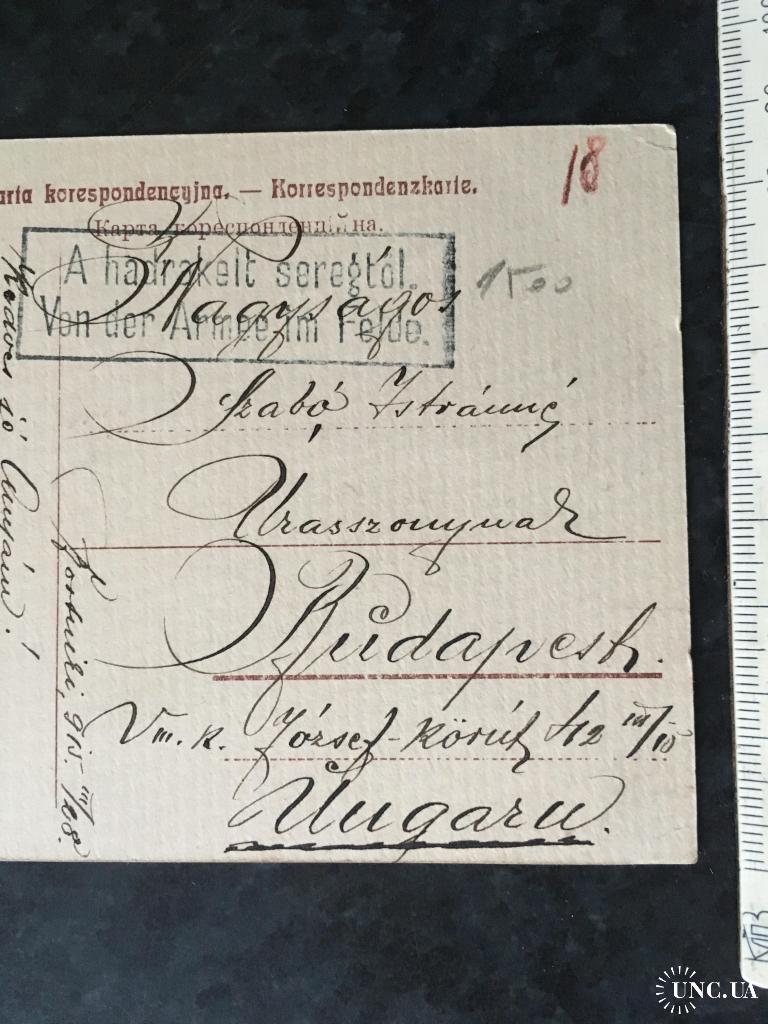 arta korespondencyjna. — Korrespondenzkarte.
Карта кореспонденційна.
18
A hadrakelt seregtől.
Von der Armee im Felde.
1500
Nagyságos
Szabó Istvánné
Urasszonynak
Budapest.
VIII. k. József-körút 42 III/15
Ungarn.
Kedves jó Anyám!
915. III/108.
КПЗ
UNC.UA